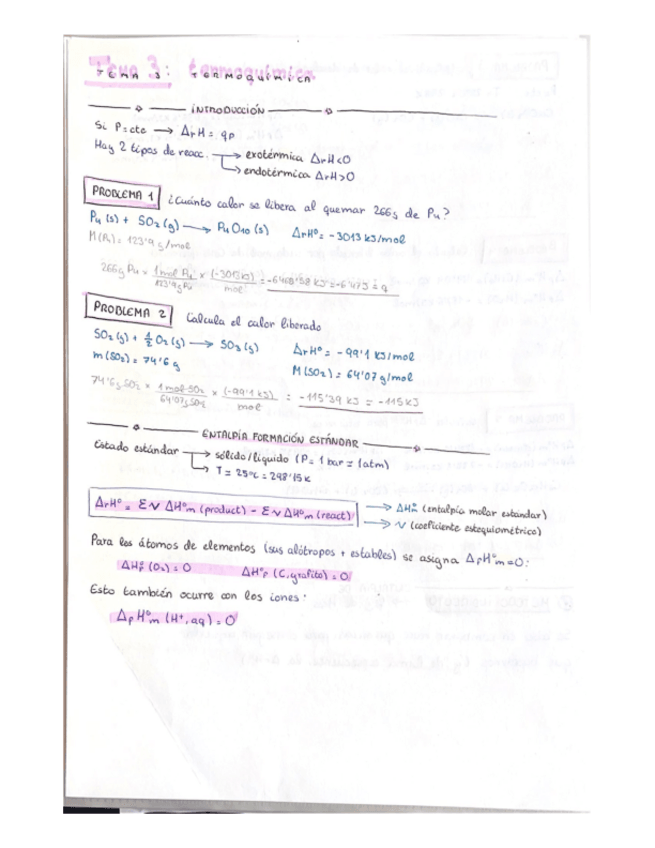 Tema 3: termoquímica
TEMA 3: TERMOQUÍMICA
INTRODUCCIÓN
Si P=cte → ΔrH = qp
Hay 2 tipos de reacc. → exotérmica ΔrH<0
→ endotérmica ΔrH>0
PROBLEMA 1 ¿Cuánto calor se libera al quemar 266g de P4?
P4 (s) + SO2 (g) → P4O10 (s) ΔrHº = -3013 kJ/mol
M(P4) = 123'9 g/mol
266g P4 × 1 mol P4 / 123'9g P4 × (-3013 kJ) / mol = -6468'58 kJ = -6473 = q
PROBLEMA 2 Calcula el calor liberado
SO2 (g) + 1/2 O2 (g) → SO3 (g) ΔrHº = -99'1 kJ/mol
m(SO2) = 74'6 g M(SO2) = 64'07 g/mol
74'6g SO2 × 1 mol SO2 / 64'07g SO2 × (-99'1 kJ) / mol = -115'39 kJ = -115 kJ
ENTALPÍA FORMACIÓN ESTÁNDAR
Estado estándar → sólido/líquido (P = 1 bar = 1atm)
→ T = 25ºC = 298'15K
ΔrHº = Σ ν ΔHºm (product) - Σ ν ΔHºm (react) → ΔHºm (entalpía molar estándar)
→ ν (coeficiente estequiométrico)
Para los átomos de elementos (sus alótropos + estables) se asigna ΔfHºm=0:
ΔHºf (O2) = 0 ΔHºf (C, grafito) = 0
Esto también ocurre con los iones:
ΔfHºm (H+, aq) = 0